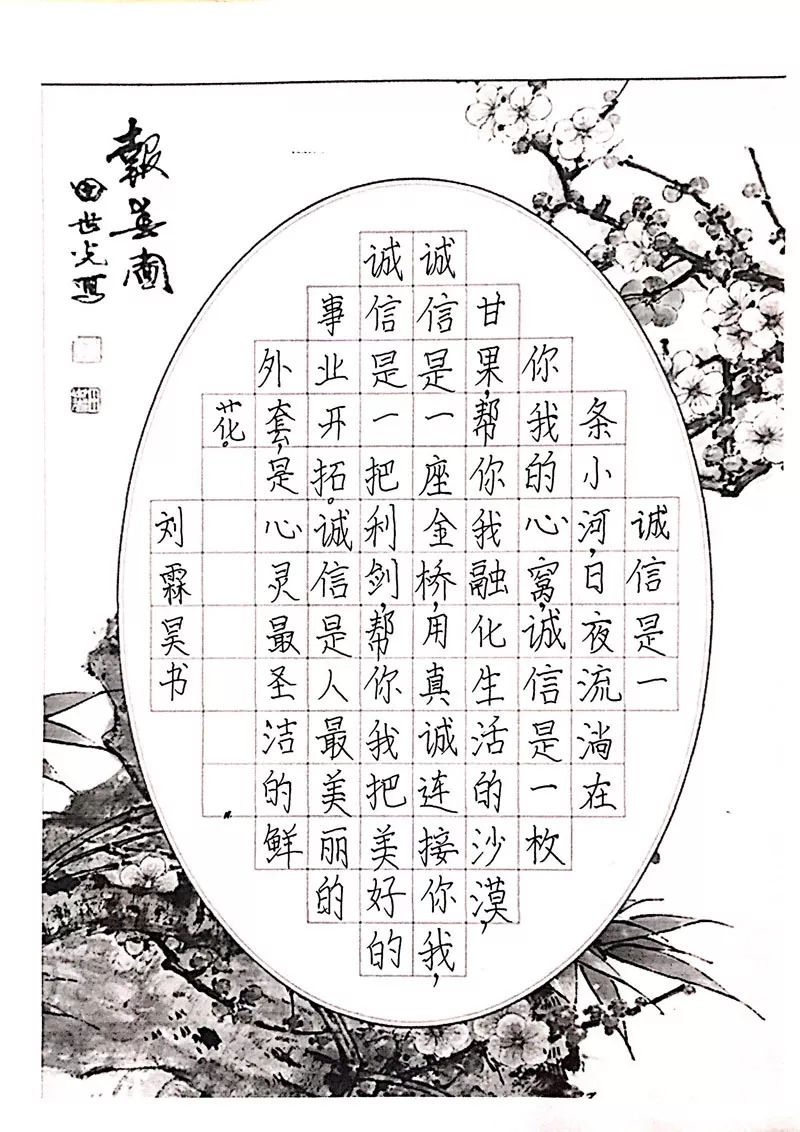 诚信是一
条小河,日夜流淌在
你我的心窝,诚信是一枚
甘果,帮你我融化生活的沙漠,
诚信是一座金桥,用真诚连接你我,
诚信是一把利剑,帮你我把美好的
事业开拓。诚信是人最美丽的
外套,是心灵最圣洁的鲜
花。
刘霖昊书
報春圖
田世光写